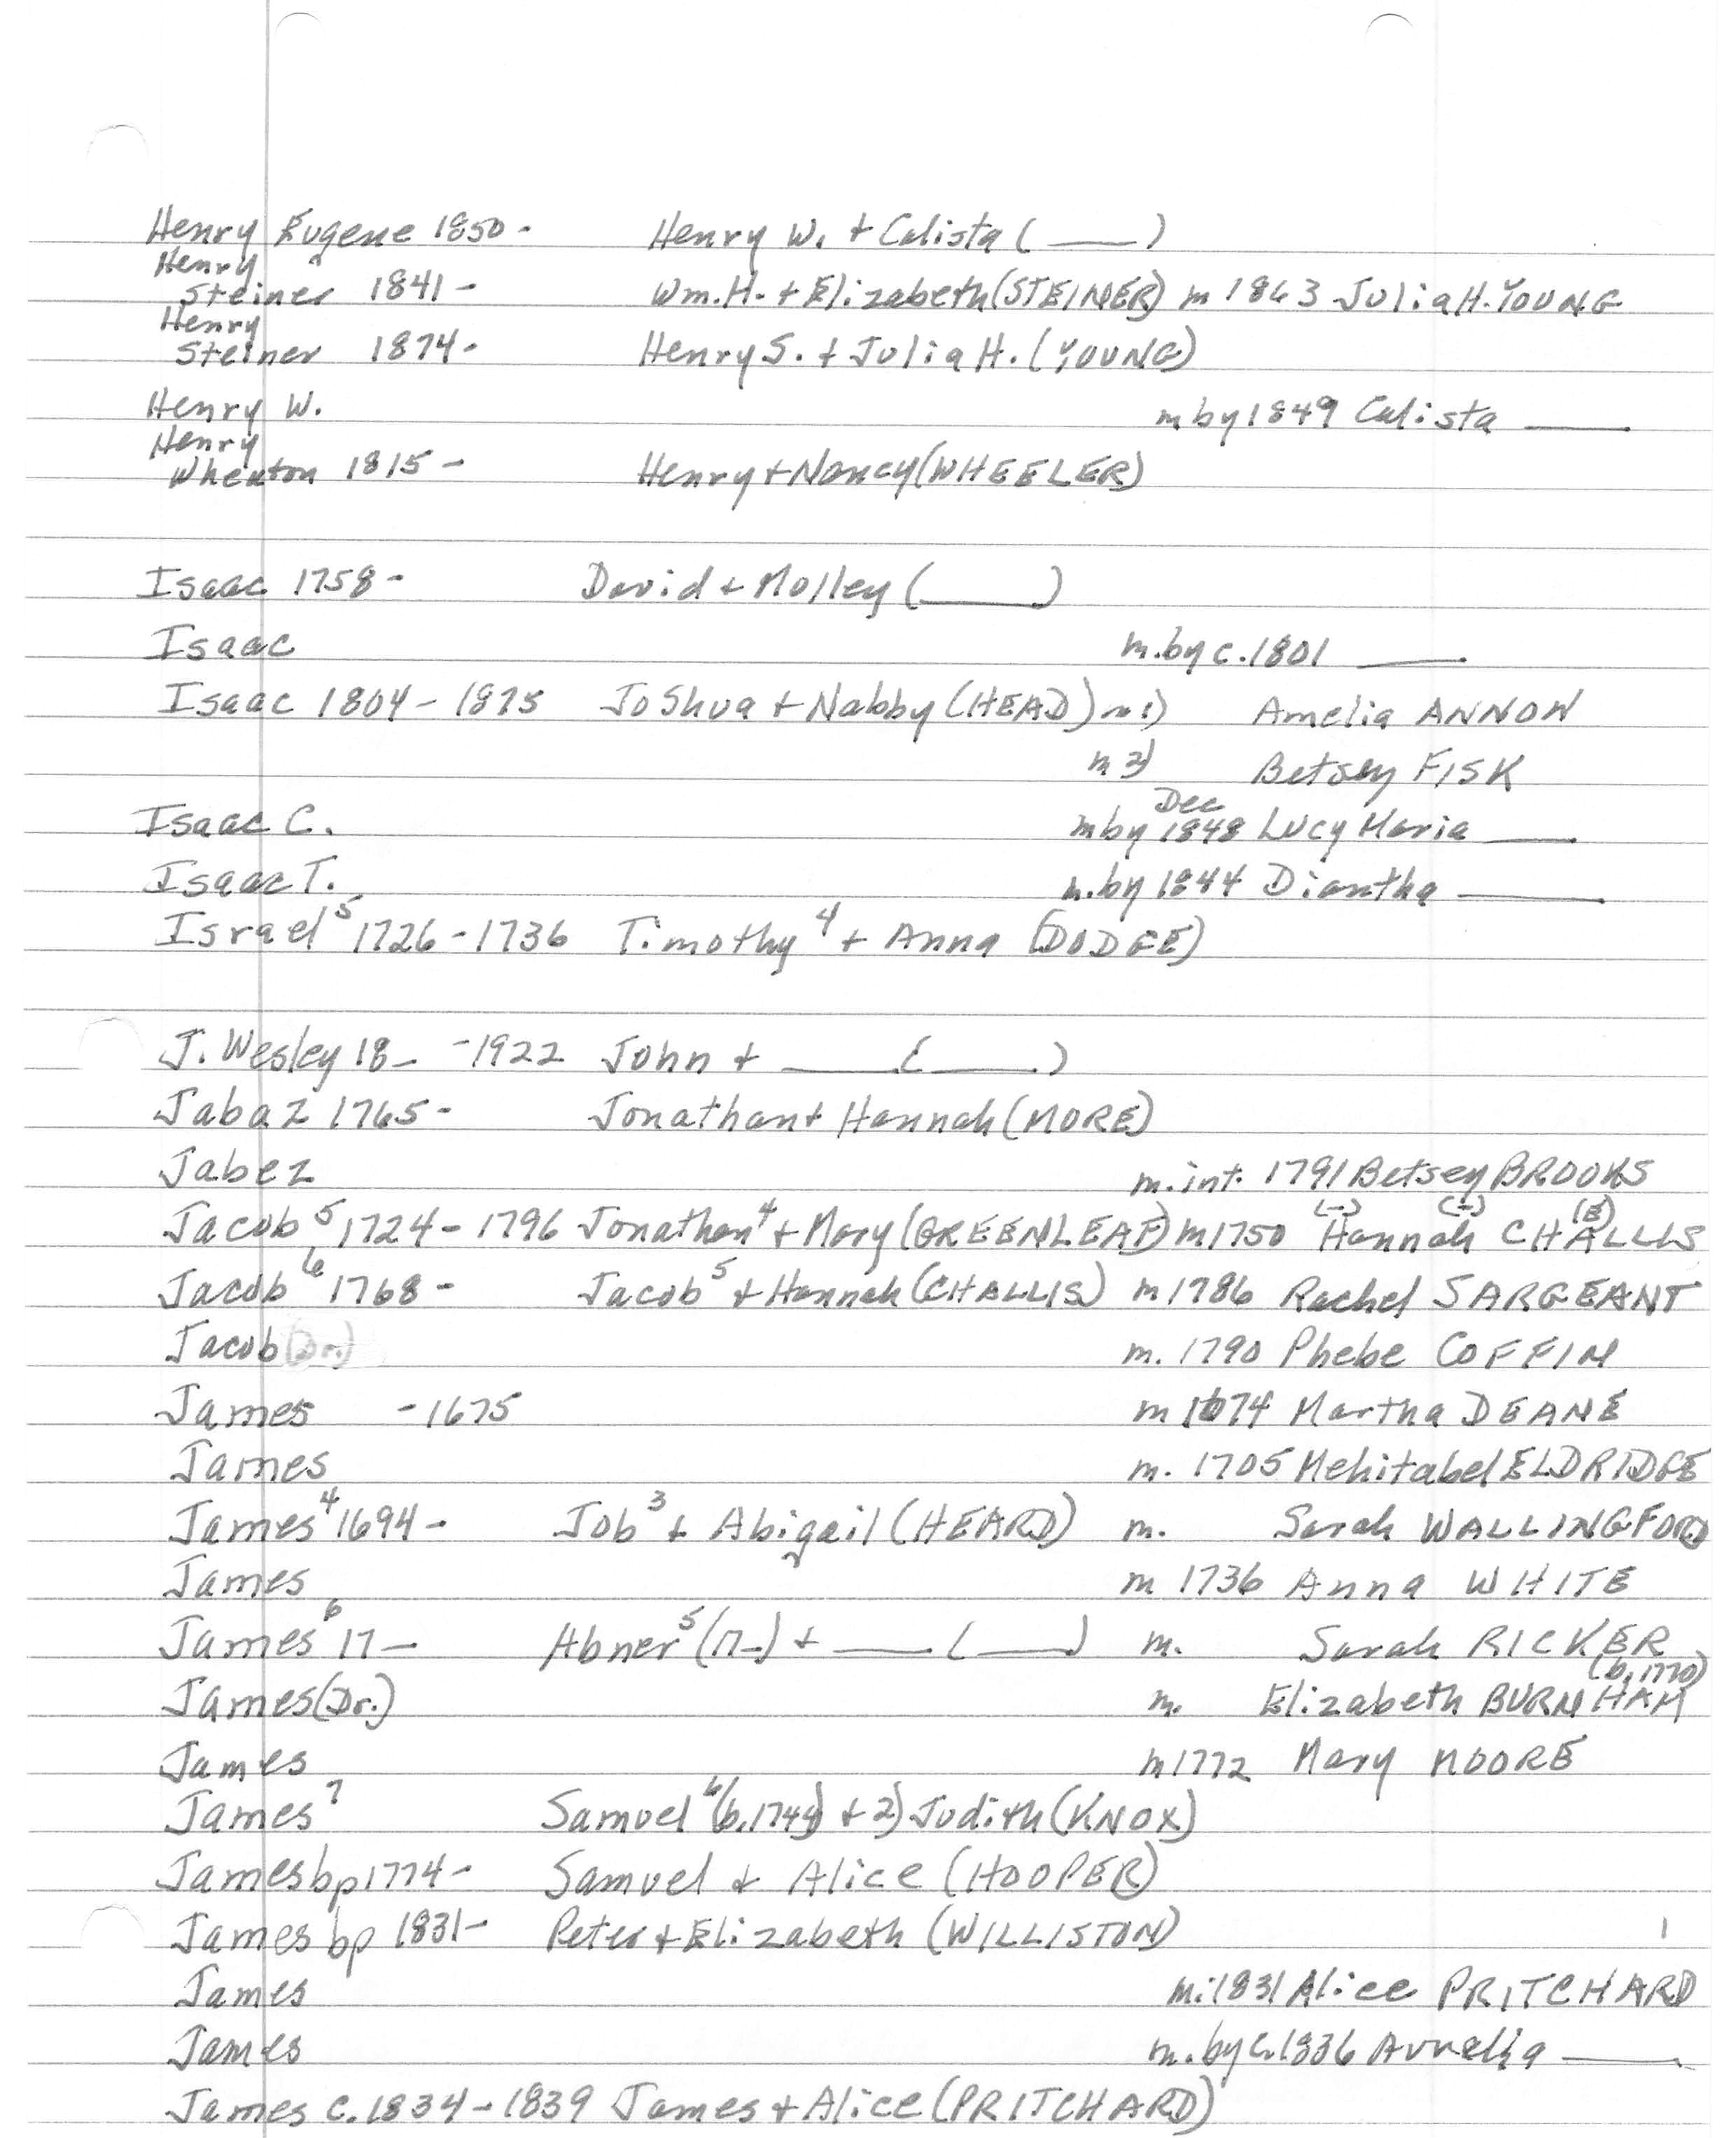 Henry Eugene 1850- Henry W. + Calista (____)
Henry
Steiner 1841- Wm. H. + Elizabeth (STEINER) m 1863 Julia H. YOUNG
Henry
Steiner 1874- Henry S. + Julia H. (YOUNG)
Henry W. m by 1849 Calista ____
Henry
Wheaton 1815- Henry + Nancy (WHEELER)
Isaac 1758- David + Molley (____)
Isaac m. by c. 1801 ____
Isaac 1804-1875 Joshua + Nabby (HEAD) m 1) Amelia ANNOW
m 2) Betsey FISK
Isaac C. m by Dec 1848 Lucy Maria ____
Isaac T. m. by 1844 Diantha ____
Israel⁵ 1726-1736 Timothy⁴ + Anna (DODGE)
J. Wesley 18_ -1922 John + ____ (____)
Jabaz 1765- Jonathan + Hannah (MORE)
Jabez m. int. 1791 Betsey BROOKS
Jacob⁵ 1724-1796 Jonathan⁴ + Mary (GREENLEAF) m 1750 (-) Hannah (-) CHALLIS (E)
Jacob⁶ 1768- Jacob⁵ + Hannah (CHALLIS) m 1786 Rachel SARGEANT
Jacob (Dr.) m. 1790 Phebe COFFIN
James -1675 m 1674 Martha DEANE
James m. 1705 Mehitabel ELDRIDGE
James⁴ 1694- Job³ + Abigail (HEARD) m. Sarah WALLINGFORD
James m 1736 Anna WHITE
James⁶ 17_ Abner⁵ (17_) + ____ (____) m. Sarah RICKER
James (Dr.) m. Elizabeth BURNHAM (b. 1770)
James m 1772 Mary MOORE
James⁷ Samuel⁶ (b. 1744) + 2) Judith (KNOX)
James bp 1774- Samuel + Alice (HOOPER)
James bp 1831- Peter + Elizabeth (WILLISTON)
James m. 1831 Alice PRITCHARD
James m. by c. 1836 Aurelia ____
James c. 1834-1839 James + Alice (PRITCHARD)